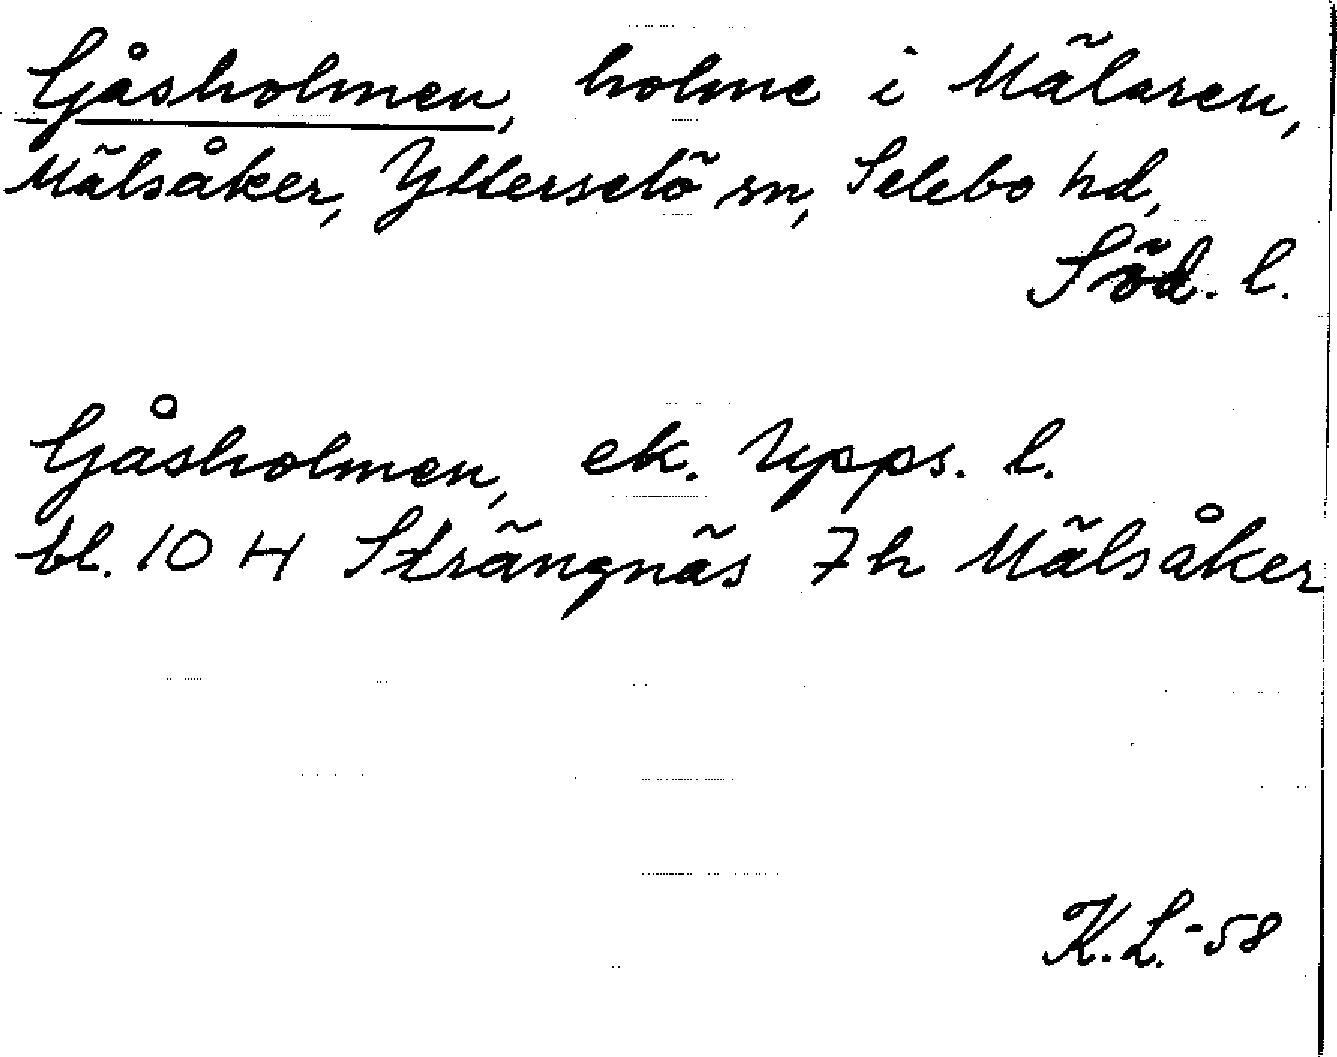 Gåsholmen, holme i Mälaren,
Mälsåker, Ytterselö sn, Selebo hd,
Söd. l.
Gåsholmen, ek. Upps. l.
bl. 10 H Strängnäs 7h Mälsåker
K.L.-58